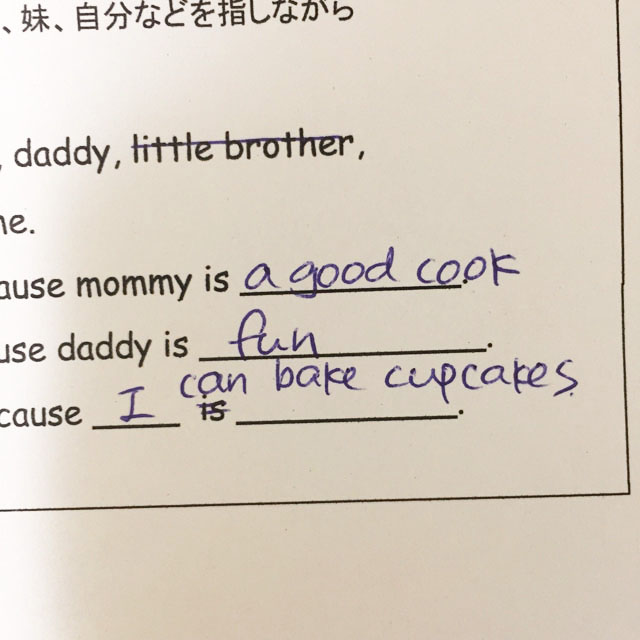 、妹、自分などを指しながら
, daddy, little brother,
me.
ause mommy is a good cook.
use daddy is fun.
can bake cupcakes
cause I is .